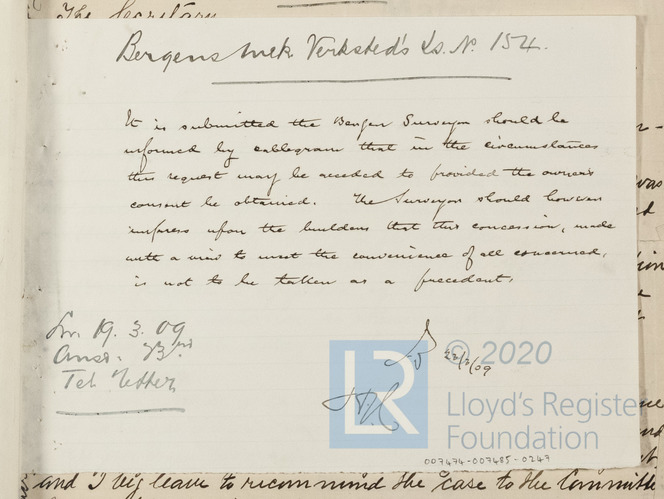 The Secretary
Bergens Mek Verksted's Ys. No. 154.
It is submitted the Bergen Surveyor should be
informed by cablegram that in the circumstances
this request may be acceded to provided the owner's
consent be obtained. The Surveyor should however
impress upon the builders that this concession, made
with a view to meet the convenience of all concerned,
is not to be taken as a precedent.
19.3.09
Ansr. 23rd
Tel Letter
22/3/09
LR
© 2020
Lloyd's Registe
Foundation
007474-007485-0247
was
and I beg leave to recommend the case to the Committe